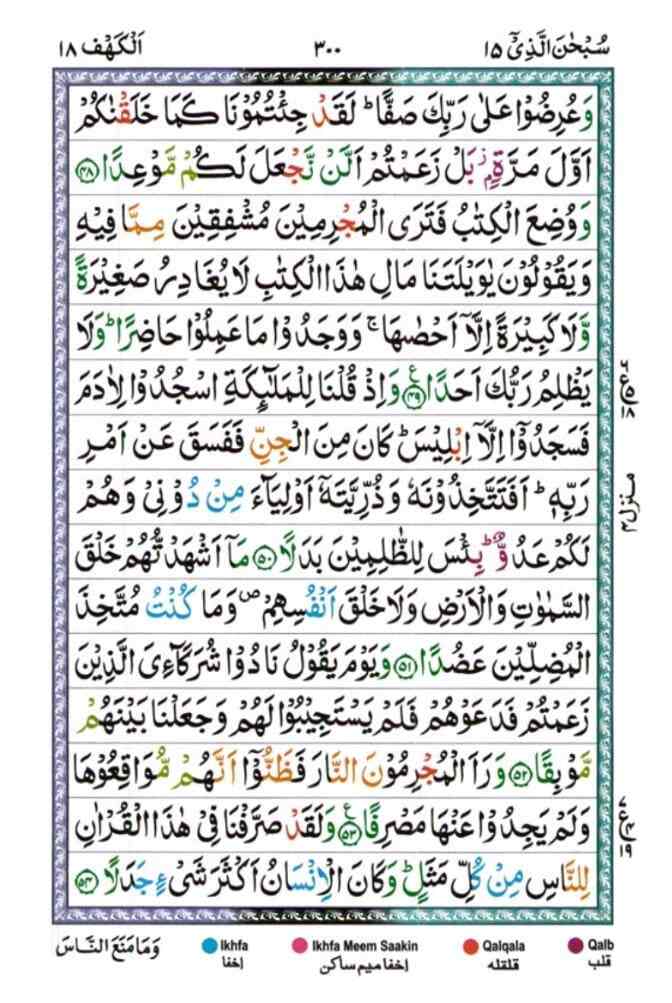 سُبْحٰنَ الَّذِیْۤ ١٥
٣٠٠
اَلْكَهْف ١٨
وَعُرِضُوْا عَلٰى رَبِّكَ صَفًّا ؕ لَقَدْ جِئْتُمُوْنَا كَمَا خَلَقْنٰكُمْ
اَوَّلَ مَرَّةٍۭ ؗ بَلْ زَعَمْتُمْ اَلَّنْ نَّجْعَلَ لَكُمْ مَّوْعِدًا ﴿٤٨﴾
وَوُضِعَ الْكِتٰبُ فَتَرَى الْمُجْرِمِيْنَ مُشْفِقِيْنَ مِمَّا فِيْهِ
وَيَقُوْلُوْنَ يٰوَيْلَتَنَا مَالِ هٰذَا الْكِتٰبِ لَا يُغَادِرُ صَغِيْرَةً
وَّلَا كَبِيْرَةً اِلَّاۤ اَحْصٰىهَا ۚ وَوَجَدُوْا مَا عَمِلُوْا حَاضِرًا ؕ وَلَا
يَظْلِمُ رَبُّكَ اَحَدًا ﴿٤٩﴾ وَاِذْ قُلْنَا لِلْمَلٰٓئِكَةِ اسْجُدُوْا لِاٰدَمَ
فَسَجَدُوْۤا اِلَّاۤ اِبْلِيْسَ ؕ كَانَ مِنَ الْجِنِّ فَفَسَقَ عَنْ اَمْرِ
رَبِّهٖ ؕ اَفَتَتَّخِذُوْنَهٗ وَذُرِّيَّتَهٗۤ اَوْلِيَآءَ مِنْ دُوْنِیْ وَهُمْ
لَكُمْ عَدُوٌّ ؕ بِئْسَ لِلظّٰلِمِيْنَ بَدَلًا ﴿٥٠﴾ مَاۤ اَشْهَدْتُّهُمْ خَلْقَ
السَّمٰوٰتِ وَالْاَرْضِ وَلَا خَلْقَ اَنْفُسِهِمْ ۪ وَمَا كُنْتُ مُتَّخِذَ
الْمُضِلِّيْنَ عَضُدًا ﴿٥١﴾ وَيَوْمَ يَقُوْلُ نَادُوْا شُرَكَآءِیَ الَّذِيْنَ
زَعَمْتُمْ فَدَعَوْهُمْ فَلَمْ يَسْتَجِيْبُوْا لَهُمْ وَجَعَلْنَا بَيْنَهُمْ
مَّوْبِقًا ﴿٥٢﴾ وَرَاَ الْمُجْرِمُوْنَ النَّارَ فَظَنُّوْۤا اَنَّهُمْ مُّوَاقِعُوْهَا
وَلَمْ يَجِدُوْا عَنْهَا مَصْرِفًا ﴿٥٣﴾ وَلَقَدْ صَرَّفْنَا فِیْ هٰذَا الْقُرْاٰنِ
لِلنَّاسِ مِنْ كُلِّ مَثَلٍ ؕ وَكَانَ الْاِنْسَانُ اَكْثَرَ شَیْءٍ جَدَلًا ﴿٥٤﴾
منزل ٤
وَمَا مَنَعَ النَّاسَ
Ikhfa
اخفا
Ikhfa Meem Saakin
اخفا میم ساکن
Qalqala
قلقله
Qalb
قلب